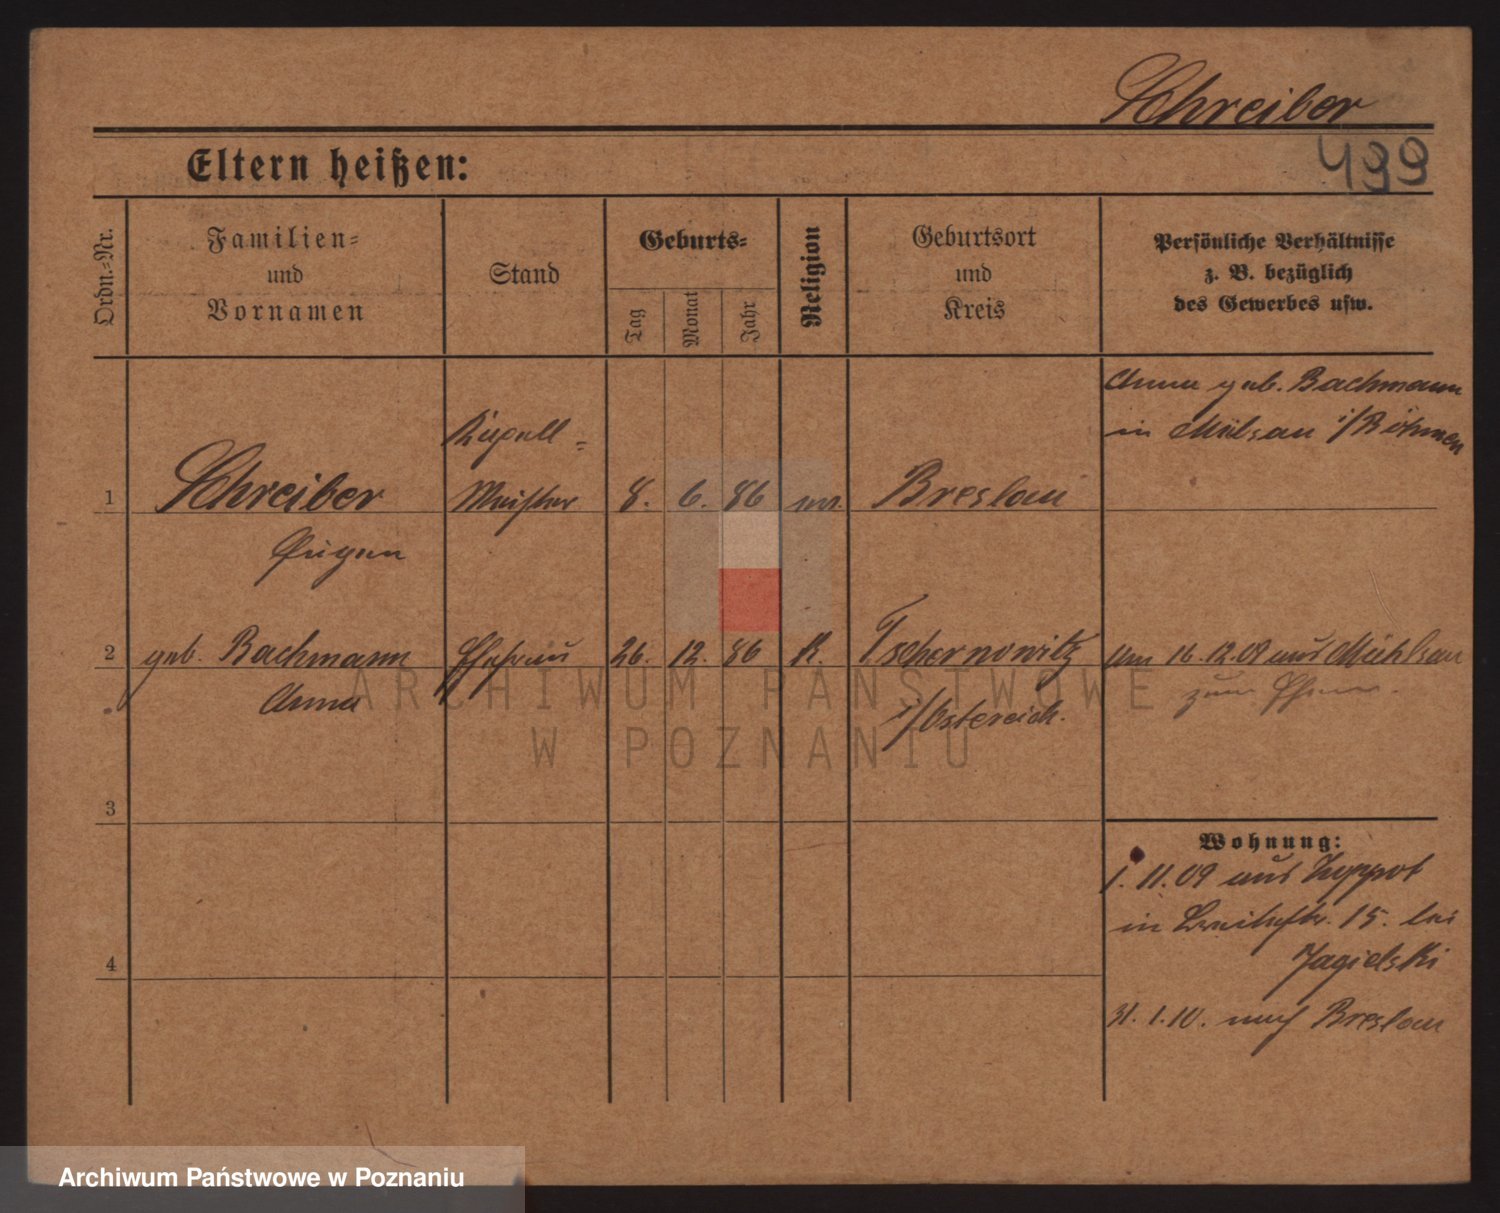 Schreiber
499
Eltern heißen:
Ordn.-Nr.
Familien-
und
Vornamen
Stand
Geburts-
Tag
Monat
Jahr
Religion
Geburtsort
und
Kreis
Persönliche Verhältnisse
z. B. bezüglich
des Gewerbes usw.
Anna geb. Bachmann
in Milsau i/Böhmen
1
Schreiber
Eugen
Kapell-
Meister
8. 6. 86
Breslau
2
geb. Bachmann
Anna
Ehefrau
26. 12. 86
K.
Tschernowitz
i/Östereich.
Am 16.12.09 aus Mühlsau
zum Ehem.
3
4
Wohnung:
1. 11. 09 aus Zoppot
in Breitestr. 15. bei
Jagielski
31. 1. 10. nach Breslau
ARCHIWUM PAŃSTWOWE
W POZNANIU
Archiwum Państwowe w Poznaniu